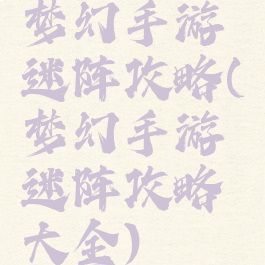 梦幻手游
迷阵攻略(
梦幻手游
迷阵攻略
大全)